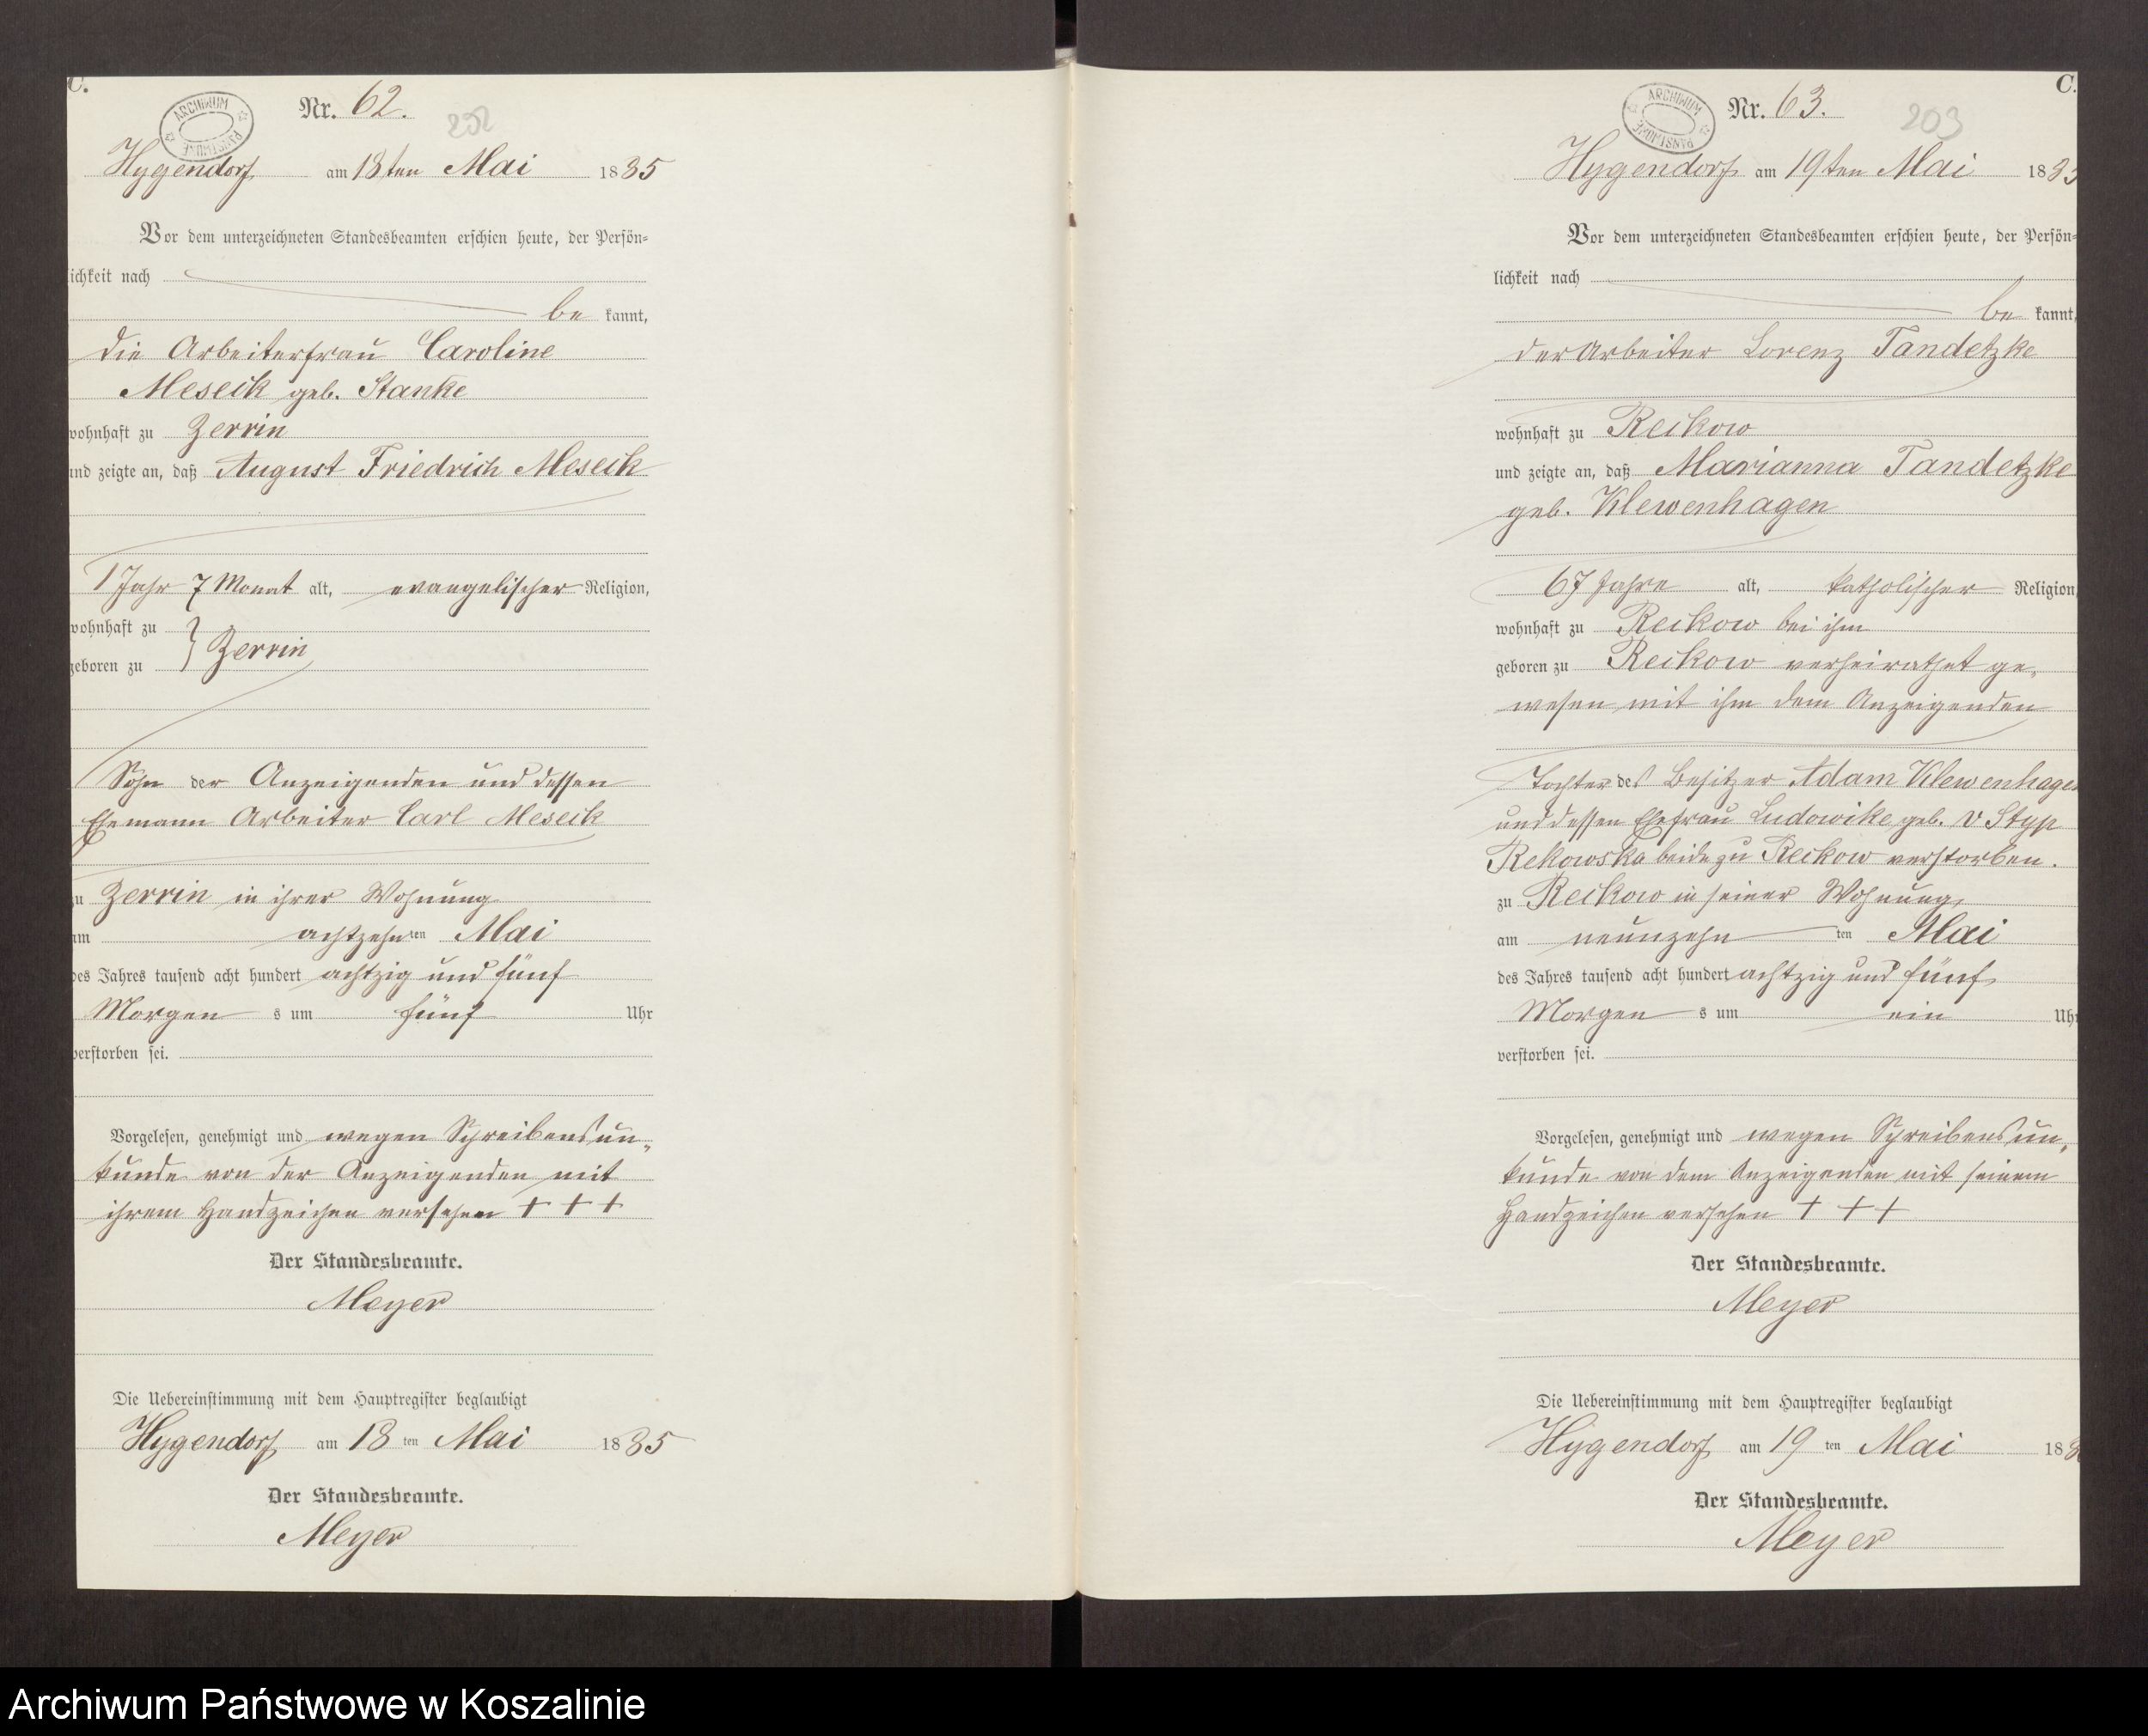 C.
ARCHIWUM PAŃSTWOWE
Nr. 62.
202
Hygendorf am 18ten Mai 1885
Vor dem unterzeichneten Standesbeamten erschien heute, der Persön-
ichkeit nach
be kannt,
die Arbeiterfrau Caroline
Meseck geb. Stanke
wohnhaft zu Zerrin
und zeigte an, daß August Friedrich Meseck
1 Jahr 7 Monat alt, evangelischer Religion,
wohnhaft zu
geboren zu } Zerrin
Sohn der Anzeigenden und dessen
Ehemann Arbeiter Carl Meseck
zu Zerrin in ihrer Wohnung
am achtzehn ten Mai
des Jahres tausend acht hundert achtzig und fünf
Morgen s um fünf Uhr
verstorben sei.
Vorgelesen, genehmigt und wegen Schreibensun-
kunde von der Anzeigenden mit
ihrem Handzeichen versehen + + +
Der Standesbeamte.
Meyer
Die Uebereinstimmung mit dem Hauptregister beglaubigt
Hygendorf am 18 ten Mai 1885
Der Standesbeamte.
Meyer
C.
ARCHIWUM PAŃSTWOWE
Nr. 63.
203
Hygendorf am 19ten Mai 1885
Vor dem unterzeichneten Standesbeamten erschien heute, der Persön-
lichkeit nach
be kannt,
der Arbeiter Lorenz Tandetzke
wohnhaft zu Reckow
und zeigte an, daß Marianna Tandetzke
geb. Klewenhagen
67 Jahre alt, katholischer Religion
wohnhaft zu Reckow bei ihm
geboren zu Reckow verheirathet ge-
wesen mit ihm dem Anzeigenden
Tochter des Besitzer Adam Klewenhagen
und dessen Ehefrau Ludowike geb. v Styp
Rekowska beide zu Reckow verstorben.
zu Reckow in seiner Wohnung,
am neunzehn ten Mai
des Jahres tausend acht hundert achtzig und fünf
Morgen s um ein Uhr
verstorben sei.
Vorgelesen, genehmigt und wegen Schreibensun-
kunde von dem Anzeigenden mit seinem
Handzeichen versehen + + +
Der Standesbeamte.
Meyer
Die Uebereinstimmung mit dem Hauptregister beglaubigt
Hygendorf am 19 ten Mai 188
Der Standesbeamte.
Meyer
Archiwum Państwowe w Koszalinie